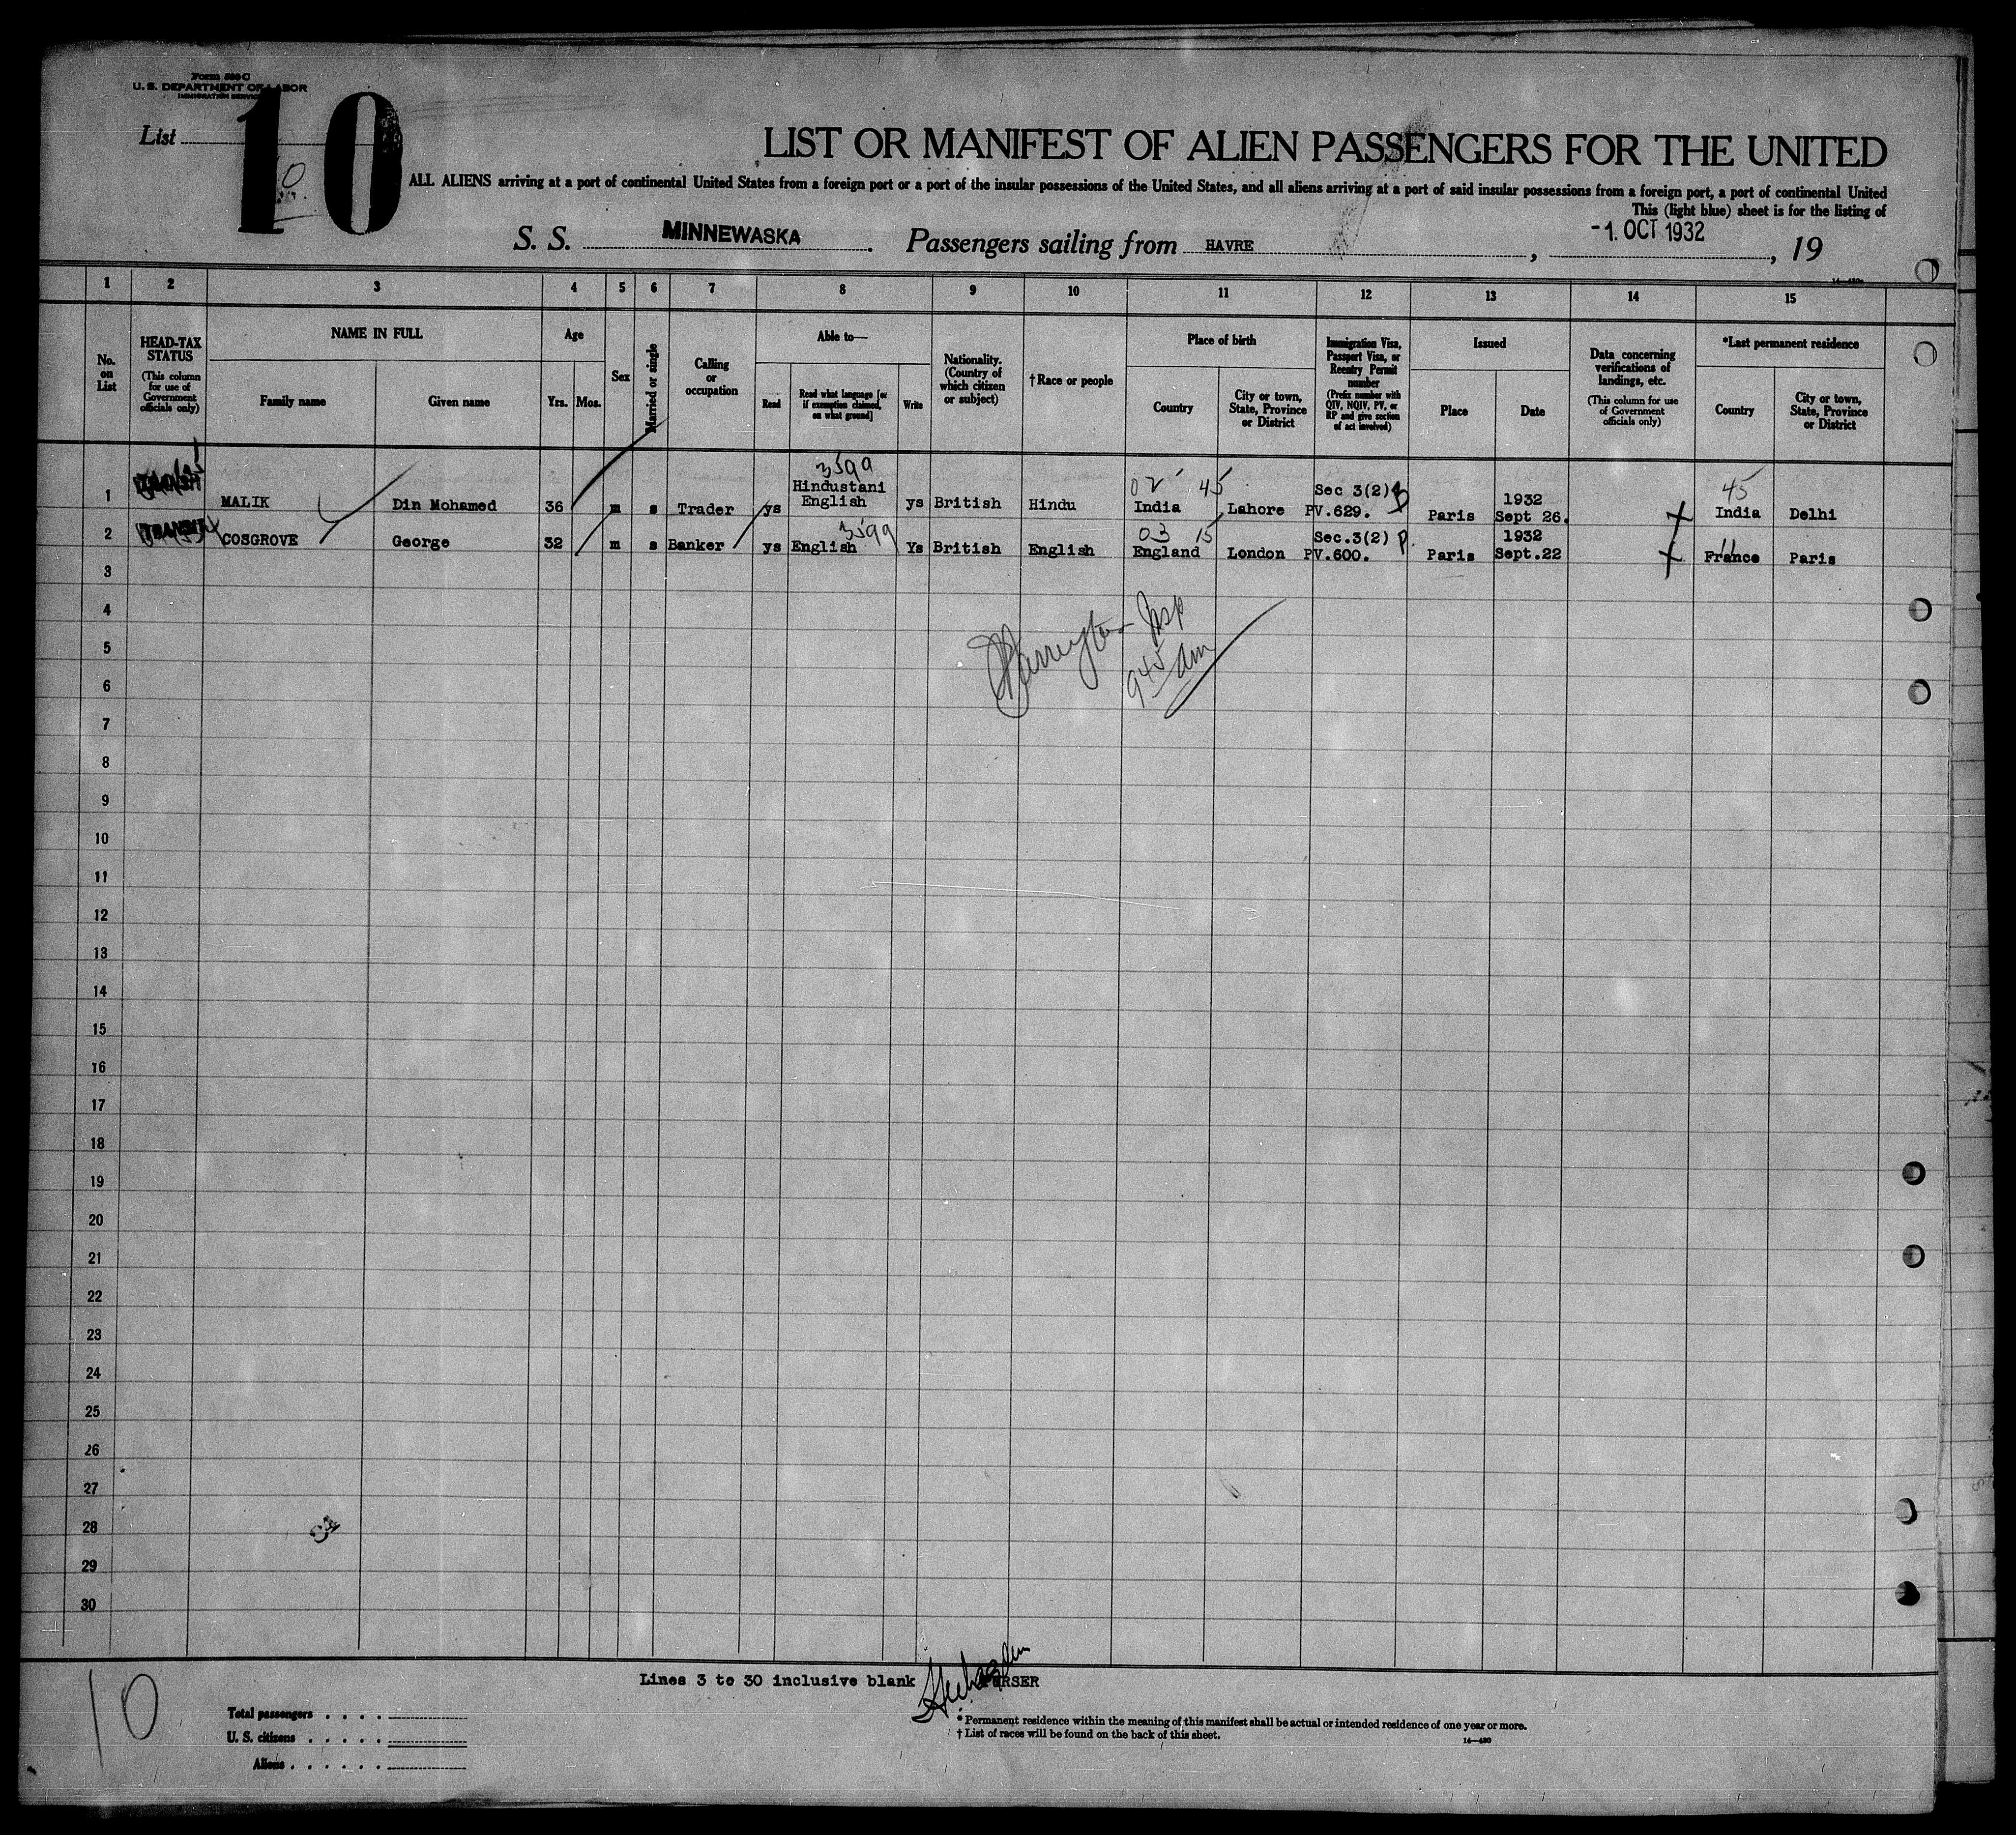 Form 500 C
U. S. DEPARTMENT OF LABOR
IMMIGRATION SERVICE
List
10
LIST OR MANIFEST OF ALIEN PASSENGERS FOR THE UNITED
ALL ALIENS arriving at a port of continental United States from a foreign port or a port of the insular possessions of the United States, and all aliens arriving at a port of said insular possessions from a foreign port, a port of continental United
This (light blue) sheet is for the listing of
S. S. MINNEWASKA. Passengers sailing from HAVRE, -1. OCT 1932, 19
1 2 3 4 5 6 7 8 9 10 11 12 13 14 15
No. on List
HEAD-TAX STATUS (This column for use of Government officials only)
NAME IN FULL
Family name
Given name
Age
Yrs.
Mos.
Sex
Married or single
Calling or occupation
Able to—
Read
Read what language [or if exemption claimed, on what ground]
Write
Nationality. (Country of which citizen or subject)
†Race or people
Place of birth
Country
City or town, State, Province or District
Immigration Visa, Passport Visa, or Reentry Permit number (Prefix number with QIV, NQIV, PV, or RP and give section of act involved)
Issued
Place
Date
Data concerning verifications of landings, etc. (This column for use of Government officials only)
*Last permanent residence
Country
City or town, State, Province or District
3599
02 45 45
1 MALIK Din Mohamed 36 m s Trader ys Hindustani English ys British Hindu India Lahore Sec 3(2) PV.629. Paris 1932 Sept 26. India Delhi
3599
03 15 11
2 TRANSIT COSGROVE George 32 m s Banker ys English Ys British English England London Sec.3(2) P. PV.600. Paris 1932 Sept.22 France Paris
3
4
Insp
5
945 am
6
7
8
9
10
11
12
13
14
15
16
17
18
19
20
21
22
23
24
25
26
27
28
29
30
Lines 3 to 30 inclusive blank PURSER
10
Total passengers
U. S. citizens
Aliens
* Permanent residence within the meaning of this manifest shall be actual or intended residence of one year or more.
† List of races will be found on the back of this sheet.
14—430